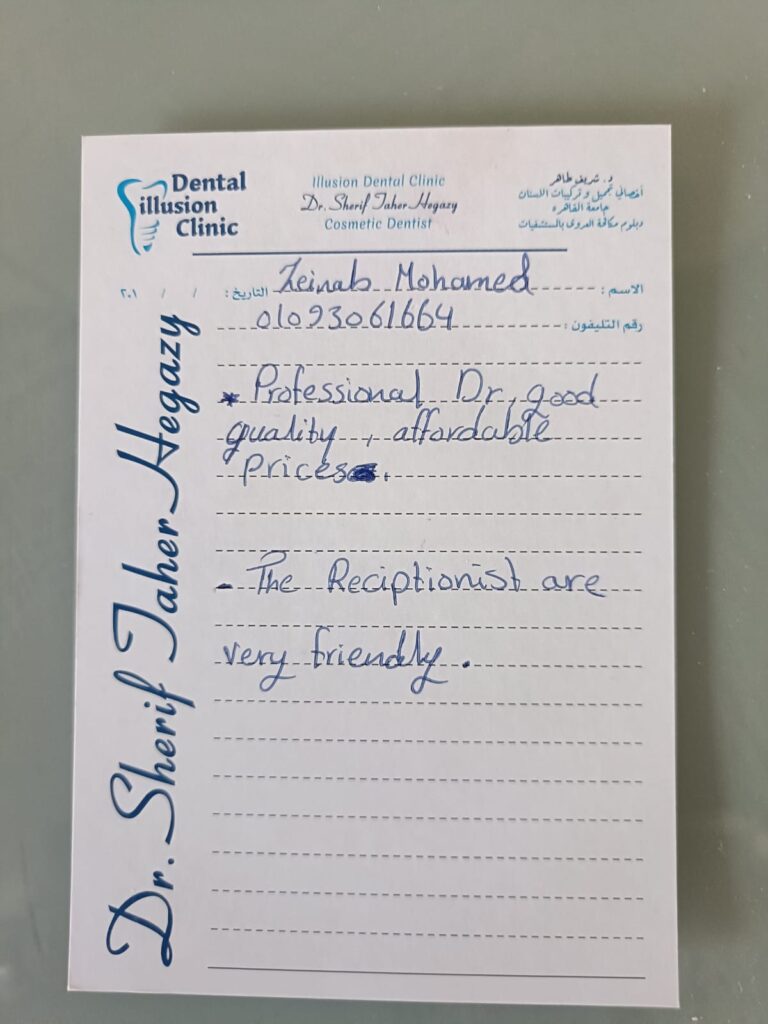 Dental
illusion
Clinic
Illusion Dental Clinic
Dr. Sherif Taher Hegazy
Cosmetic Dentist
د. شريف طاهر
أخصائي تجميل وتركيبات الاسنان
جامعة القاهرة
دبلوم مكافحة العدوى بالمستشفيات
الاسم : Zeinab Mohamed التاريخ : / / ٢٠١
رقم التليفون : 01093061664
* Professional Dr, good
quality, affordable
prices.
- The Reciptionist are
very friendly.
Dr. Sherif Taher Hegazy